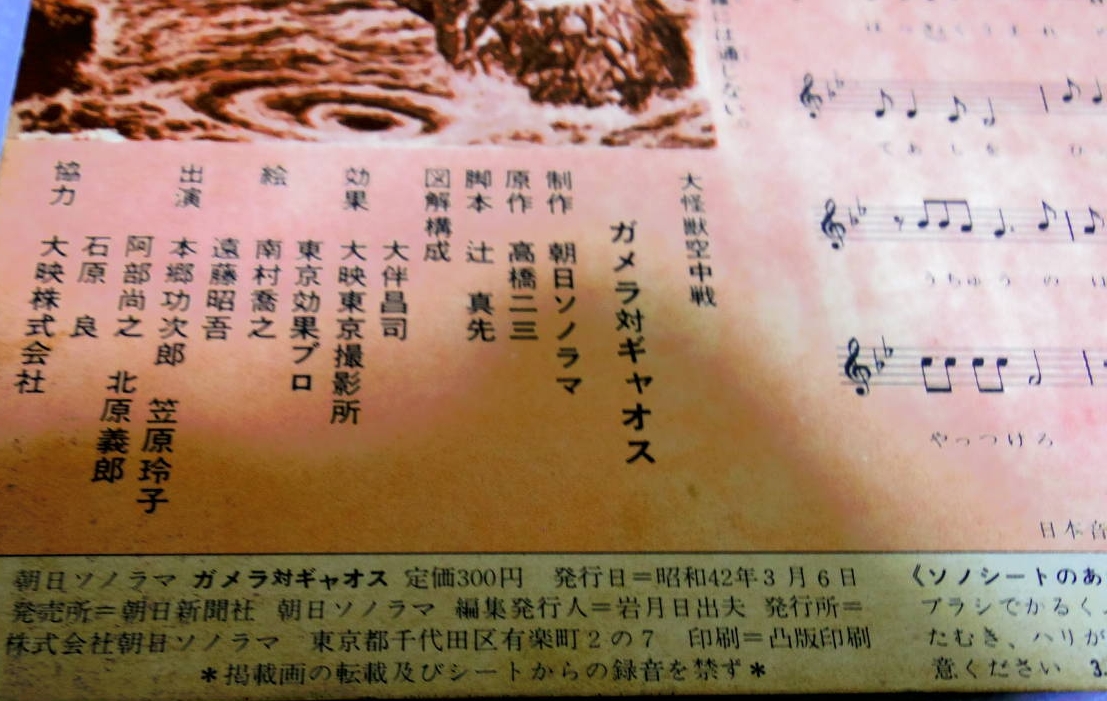 様には通じない。
てあしを
うちゅう の
やっつけろ
大怪獣空中戦
ガメラ対ギャオス
制作 朝日ソノラマ
原作 高橋二三
脚本 辻 真先
図解構成
大伴昌司
効果 大映東京撮影所
東京効果プロ
絵 南村喬之
遠藤昭吾
出演 本郷功次郎 笠原玲子
阿部尚之 北原義郎
石原 良
協力 大映株式会社
朝日ソノラマ ガメラ対ギャオス 定価300円 発行日=昭和42年3月6日
発売所=朝日新聞社 朝日ソノラマ 編集発行人=岩月日出夫 発行所=
株式会社朝日ソノラマ 東京都千代田区有楽町2の7 印刷=凸版印刷
*掲載画の転載及びシートからの録音を禁ず*
《ソノシートのあ
ブラシでかるく
たむき、ハリが
意ください 3.
日本音